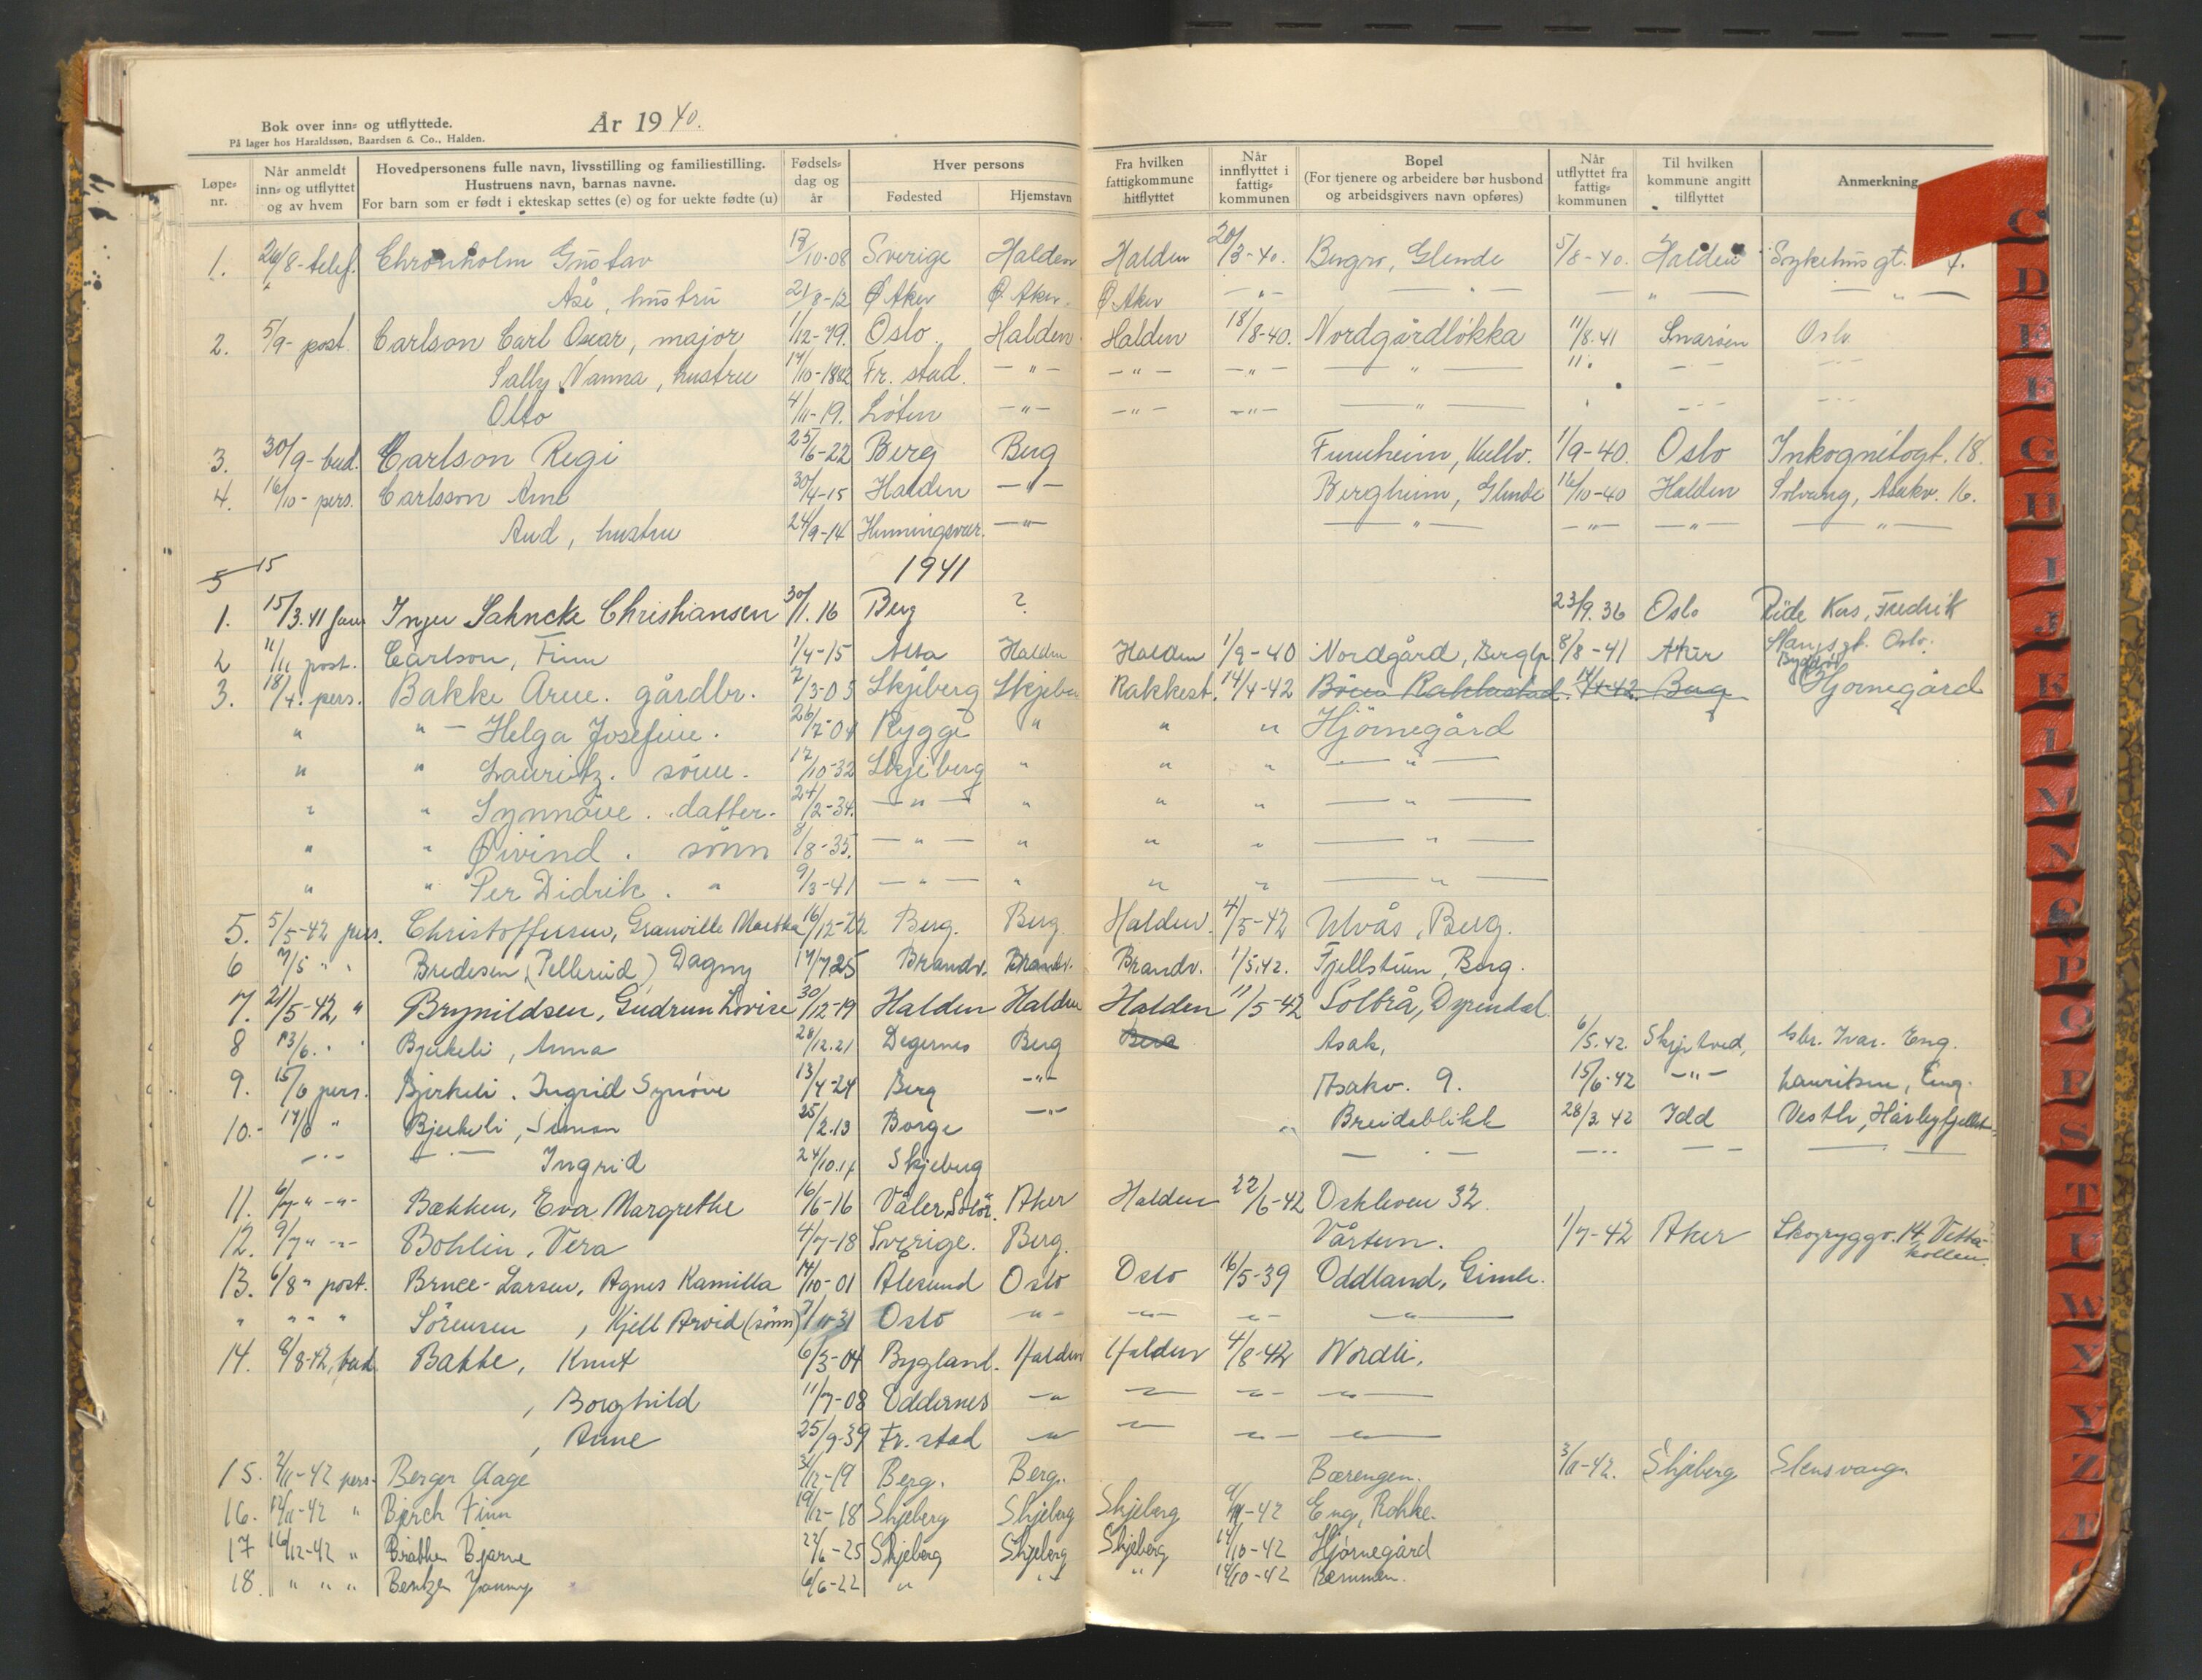 Bok over inn- og utflyttede.
På lager hos Haraldssøn, Baardsen & Co., Halden.
År 19 40.
Løpe-nr. Når anmeldt inn- og utflyttet og av hvem Hovedpersonens fulle navn, livsstilling og familiestilling. Hustruens navn, barnas navne. For barn som er født i ekteskap settes (e) og for uekte fødte (u) Fødsels-dag og år Hver persons Fødested Hjemstavn Fra hvilken fattigkommune hitflyttet Når innflyttet i fattig-kommunen Bopel (For tjenere og arbeidere bør husbond og arbeidsgivers navn opføres) Når utflyttet fra fattig-kommunen Til hvilken kommune angitt tilflyttet Anmerkning
1. 26/8- telef. Chronholm Gustav 13/10-08 Sverige Halden Halden 20/3-40. Bergro, Glende 5/8-40. Halden Sykehusgt.
Åse, hustru 21/8-12 Ø Aker Ø. Aker. Ø Aker -"- -"- -"- -"-
2. 5/9- post. Carlson Carl Oscar, major 1/12-79. Oslo. Halden. Halden 18/8-40. Nordgårdløkka 11/8.41 Snarøen Oslo
Sally Nanna, hustru 14/10-1882 Fr. stad. -"- -"- -"- -"- 11. - -
Otto 4/11-19. Løten -"- -"- -"- -"-
3. 30/9- bud. Carlson Regi 25/6-22 Berg Berg Furuheim, Kullv. 1/9-40. Oslo Inkognitogt. 18.
4. 16/10- pers. Carlsson Arne 30/4-15 Halden -"- Bergheim, Glende 16/10-40 Halden Solvang, Asakv. 16.
Aud, hustru 24/9-14 Henningsvær. -"- -"- -"- -"- -"-
5 15 1941
1. 15/3.41 Inger Jahncke Christiansen 30/1.16 Berg ? 23/9.36 Oslo Kus, Fredrik
Stangsgt. Oslo.
2 11/11 post. Carlson, Finn 1/4-15 Alta Halden Halden 1/9-40 Nordgård, Berglp. 8/8-41 Aker Bygdøy
3. 18/4. pers. Bakke Arne. gårdbr. 7/3-05 Skjeberg Skjeberg Rakkest. 14/4-42 Rakkestad. 14/4-42 Berg Hjørnegård
" "- Helga Josefine. 26/7-04 Rygge " " " Hjørnegård "
" " Lauritz. sønn. 17/10-32 Skjeberg " " " -"-
" " Synnøve. datter. 24/2-34. -"- " " " -"-
" " Øivind. sønn 8/8-35. -"- " " " -"-
" " Per Didrik. " 9/3-41 -"- " " " -"-
5. 5/5-42 pers. Christoffersen, Granville Martha 16/12-22 Berg. Berg. Halden. 4/5-42 Ulvås, Berg.
6 7/5 " " Bredesen (Pellerud) Dagny 17/7 25 Brandv. Brandv. Brandv. 1/5.42. Fjellstuen, Berg.
7. 21/5-42, " Brynildsen, Gudrun Lovise 30/12-19 Halden Halden Halden 11/5-42 Solbrå, Dyrendal.
8 13/6. " " Bjerkeli, Anna 28/12.21 Degernes Berg Berg Asak, 6/5.42. Skjetved, Gbr. Ivar. Eng.
9. 15/6 pers. Bjerkeli. Ingrid Synøve 13/4-24 Berg -"- Asakv. 9. 15/6-42 -"- Lauritsen, Eng.
10.- 17/6 " Bjerkeli, Simon 25/2.13 Borge -"- " Breidablikk 28/3 42 Idd Vestli, Hårbyfjellet.
-"- -"- Ingrid 24/10.17 Skjeberg - " - -"- - - -
11. 6/7 " -"- Bækken, Eva Margrethe 16/6-16 Våler, Solør. Aker Halden 22/6-42 Oskleven 32.
12. 9/7 " -"- Bohlin, Vera 4/7-18 Sverige. Berg. Vårtun. 1/7-42 Aker Skogryggv. 14 Vettakollen.
13. 6/8 " post. Bruce-Larsen, Agnes Kamilla 14/10-01 Ålesund Oslo Oslo 16/5-39 Oddland, Gimle.
" " " " Sørensen, Kjell Arvid (sønn) 7/11-31 Oslo -"- -"- -"- -"-
14. 8/8-42, bud. Bakke, Knut 6/3-04 Bygland. Halden Halden 4/8-42 Nordli.
, Borghild 11/7-08 Oddernes -"- -"- -"- -"-
, Anne 25/9-39 Fr. stad -"- -"- -"- -"-
15. 2/11-42 pers. Berger Aage 31/12-19 Berg. Berg. Bærengen. 3/11-42. Skjeberg Stensvang.
16. 12/11-42 " Bjerch Finn 19/12-18 Skjeberg Skjeberg Skjeberg 9/11-42 Eng, Rokke.
17 16/12-42 " Bråthen Bjarne 22/6-25 Skjeberg Skjeberg Skjeberg 14/10-42 Hjørnegård
18. " " " Bentzen Jenny 6/6-22 " " " 14/10-42
C
D
E
F
G
H
I
J
K
L
M
N
O
P
Q
R
S
T
U
W
X
Y
Z
Æ